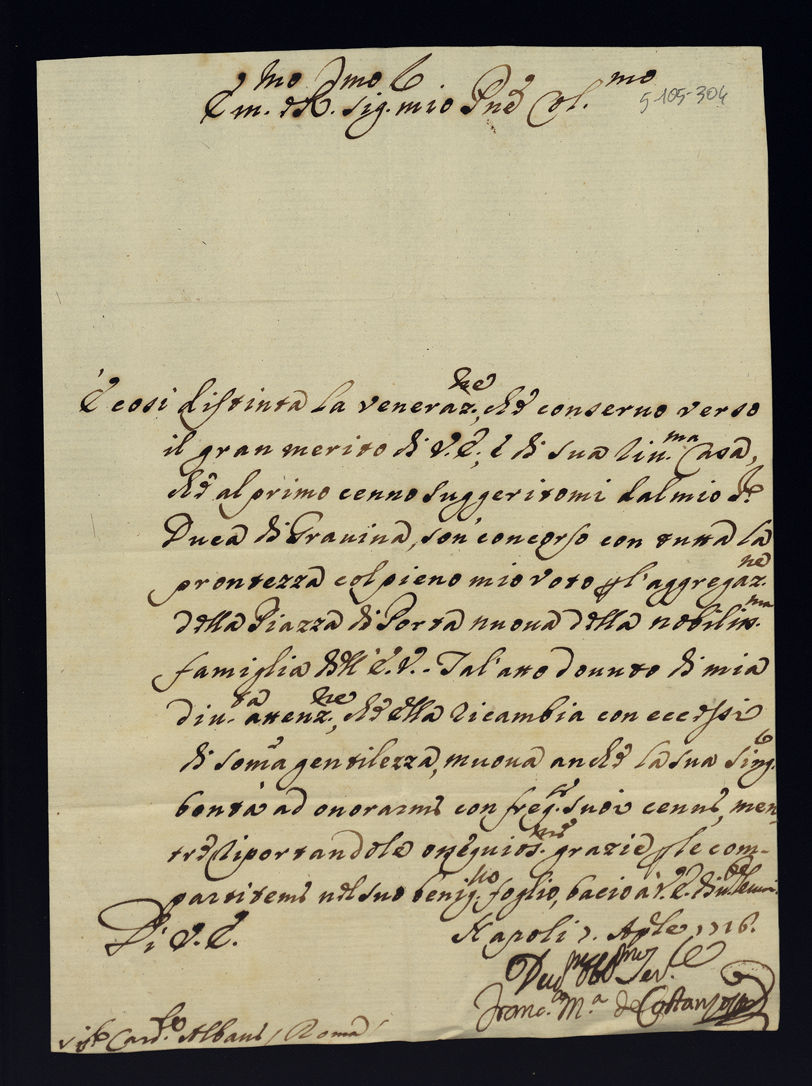 Em.mo e R.mo Sig.r mio Pne Col.mo
5-105-304
È così distinta la veneraz.ne, che conseruo verso
il gran merito di V.E., e di sua Ecc.ma Casa,
che al primo cenno suggeritomi dal mio S.r
Duca di Grauina, son concorso con tutta la
prontezza col pieno mio voto p l'aggregaz.ne
della Piazza di Porta nuoua della nobiliss.ma
famiglia dell'E.V. Tal'atto douuto di mia
diu.ta attenz.ne, che ella ricambia con eccessi
di soma gentilezza, muoua anche la sua sing.r
bontà ad onorarmi con freq.ti suoi cenni, men-
tre riportandole osseguios.me grazie p le com-
partitemi nel suo benig.mo foglio, bacio a V.E.
Di V.E.
Napoli 7. Aple 1716.
Deu.mo Obb.mo Ser.re
Franc.co M.a de Costanzo
Card.le Albani / Roma